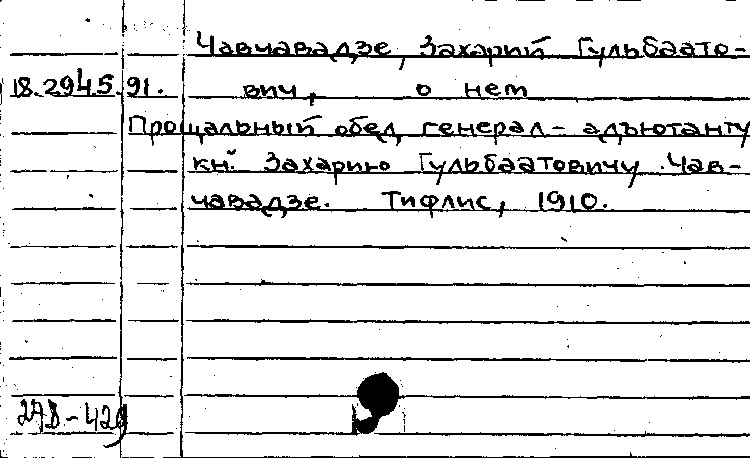 Чавчавадзе, Захарий Гульбаато-
18.2945.91. вич, о нем
Прощальный обед генерал-адъютанту
кн. Захарию Гульбаатовичу Чав-
чавадзе. Тифлис, 1910.